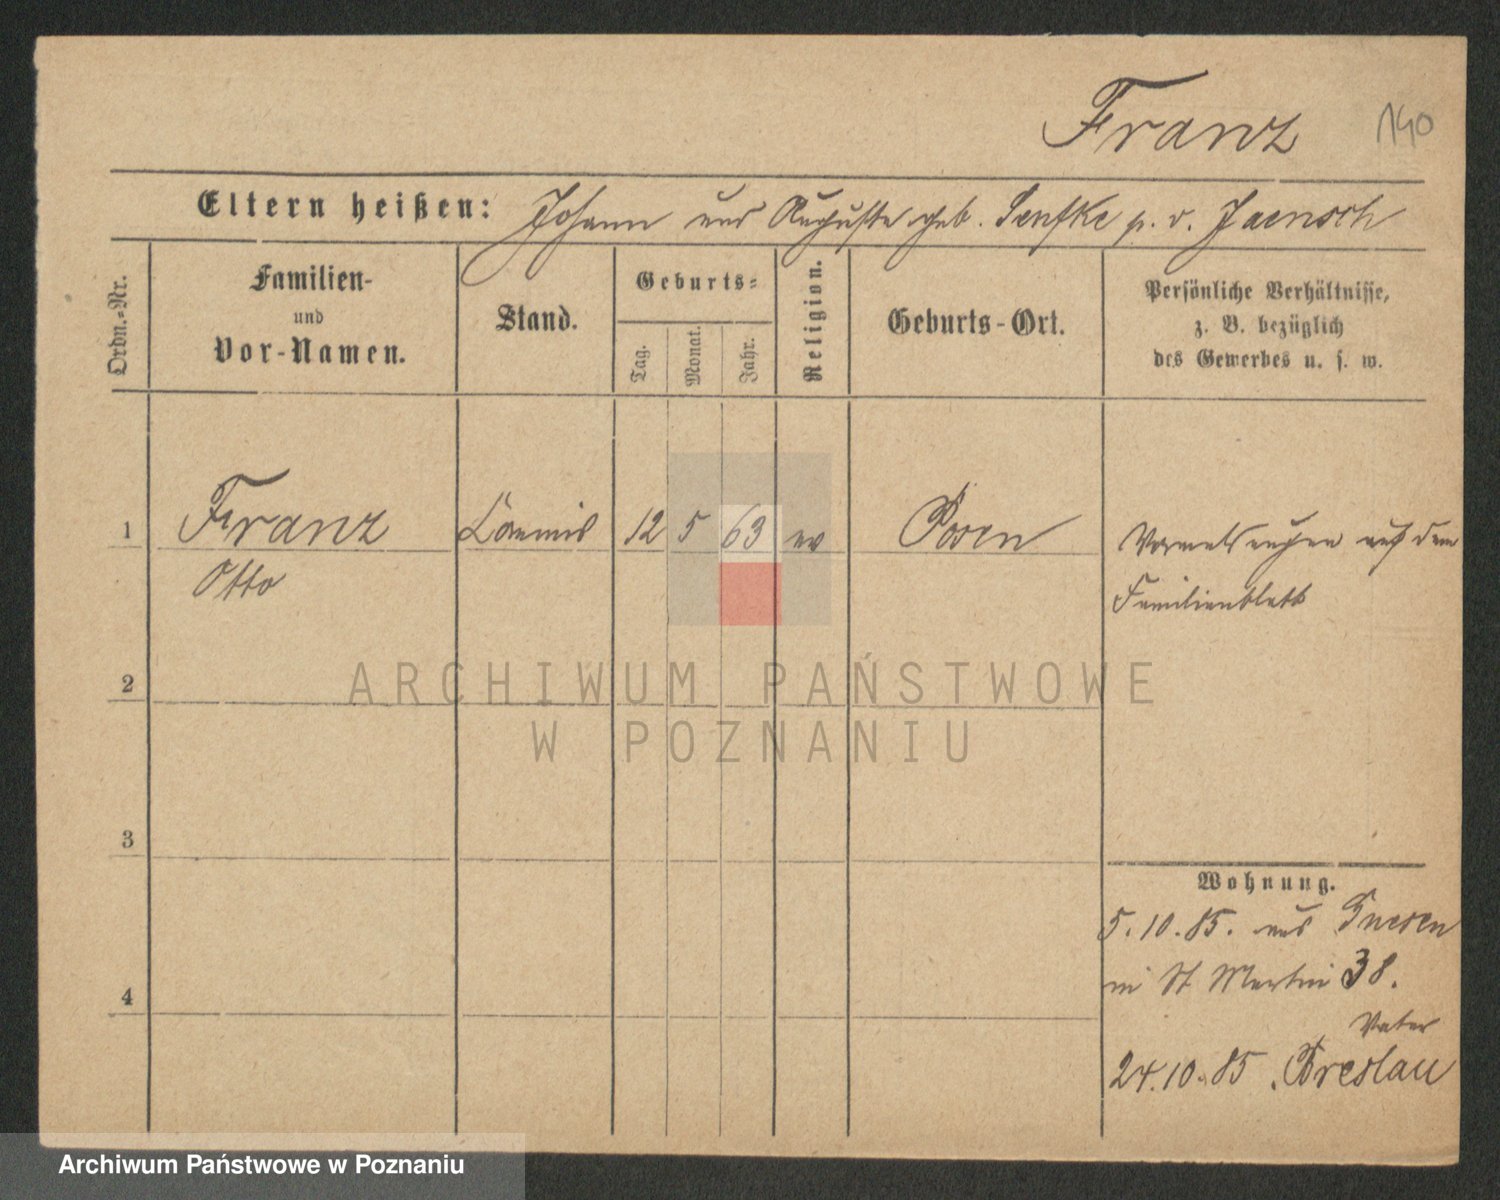 Franz
140
Eltern heißen: Johann und Auguste geb. Senfke p. v. Jaensch
Ordn.-Nr.
Familien-
und
Vor-Namen.
Stand.
Geburts-
Tag.
Monat.
Jahr.
Religion.
Geburts-Ort.
Persönliche Verhältnisse,
z. B. bezüglich
des Gewerbes u. s. w.
1 Franz Commis 12 5 63 ev Posen
Otto
auf dem
Familienblatt
2
3
4
Wohnung.
5.10.85. aus Gnesen
in St Martin 38.
Vater
24.10.85. Breslau
ARCHIWUM PAŃSTWOWE
W POZNANIU
Archiwum Państwowe w Poznaniu